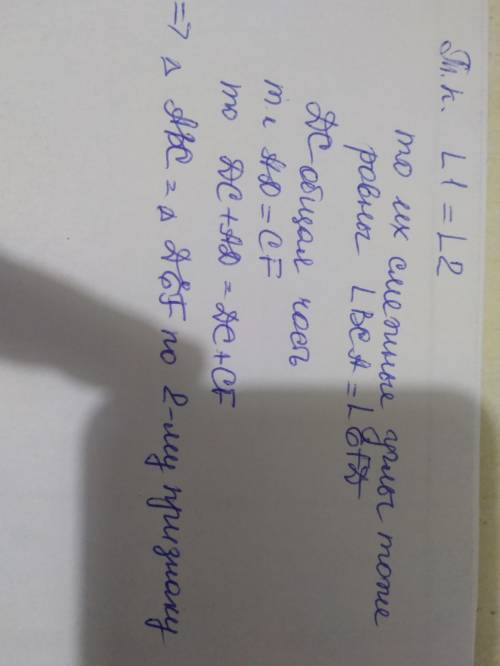 Т.к. L1 = L2
то их смежные углы тоже
равны LBCA = LEFD
DC общая часть
т.к AD = CF
то DC + AD = DC + CF
=> △ ABC = △ DEF по 2-му признаку